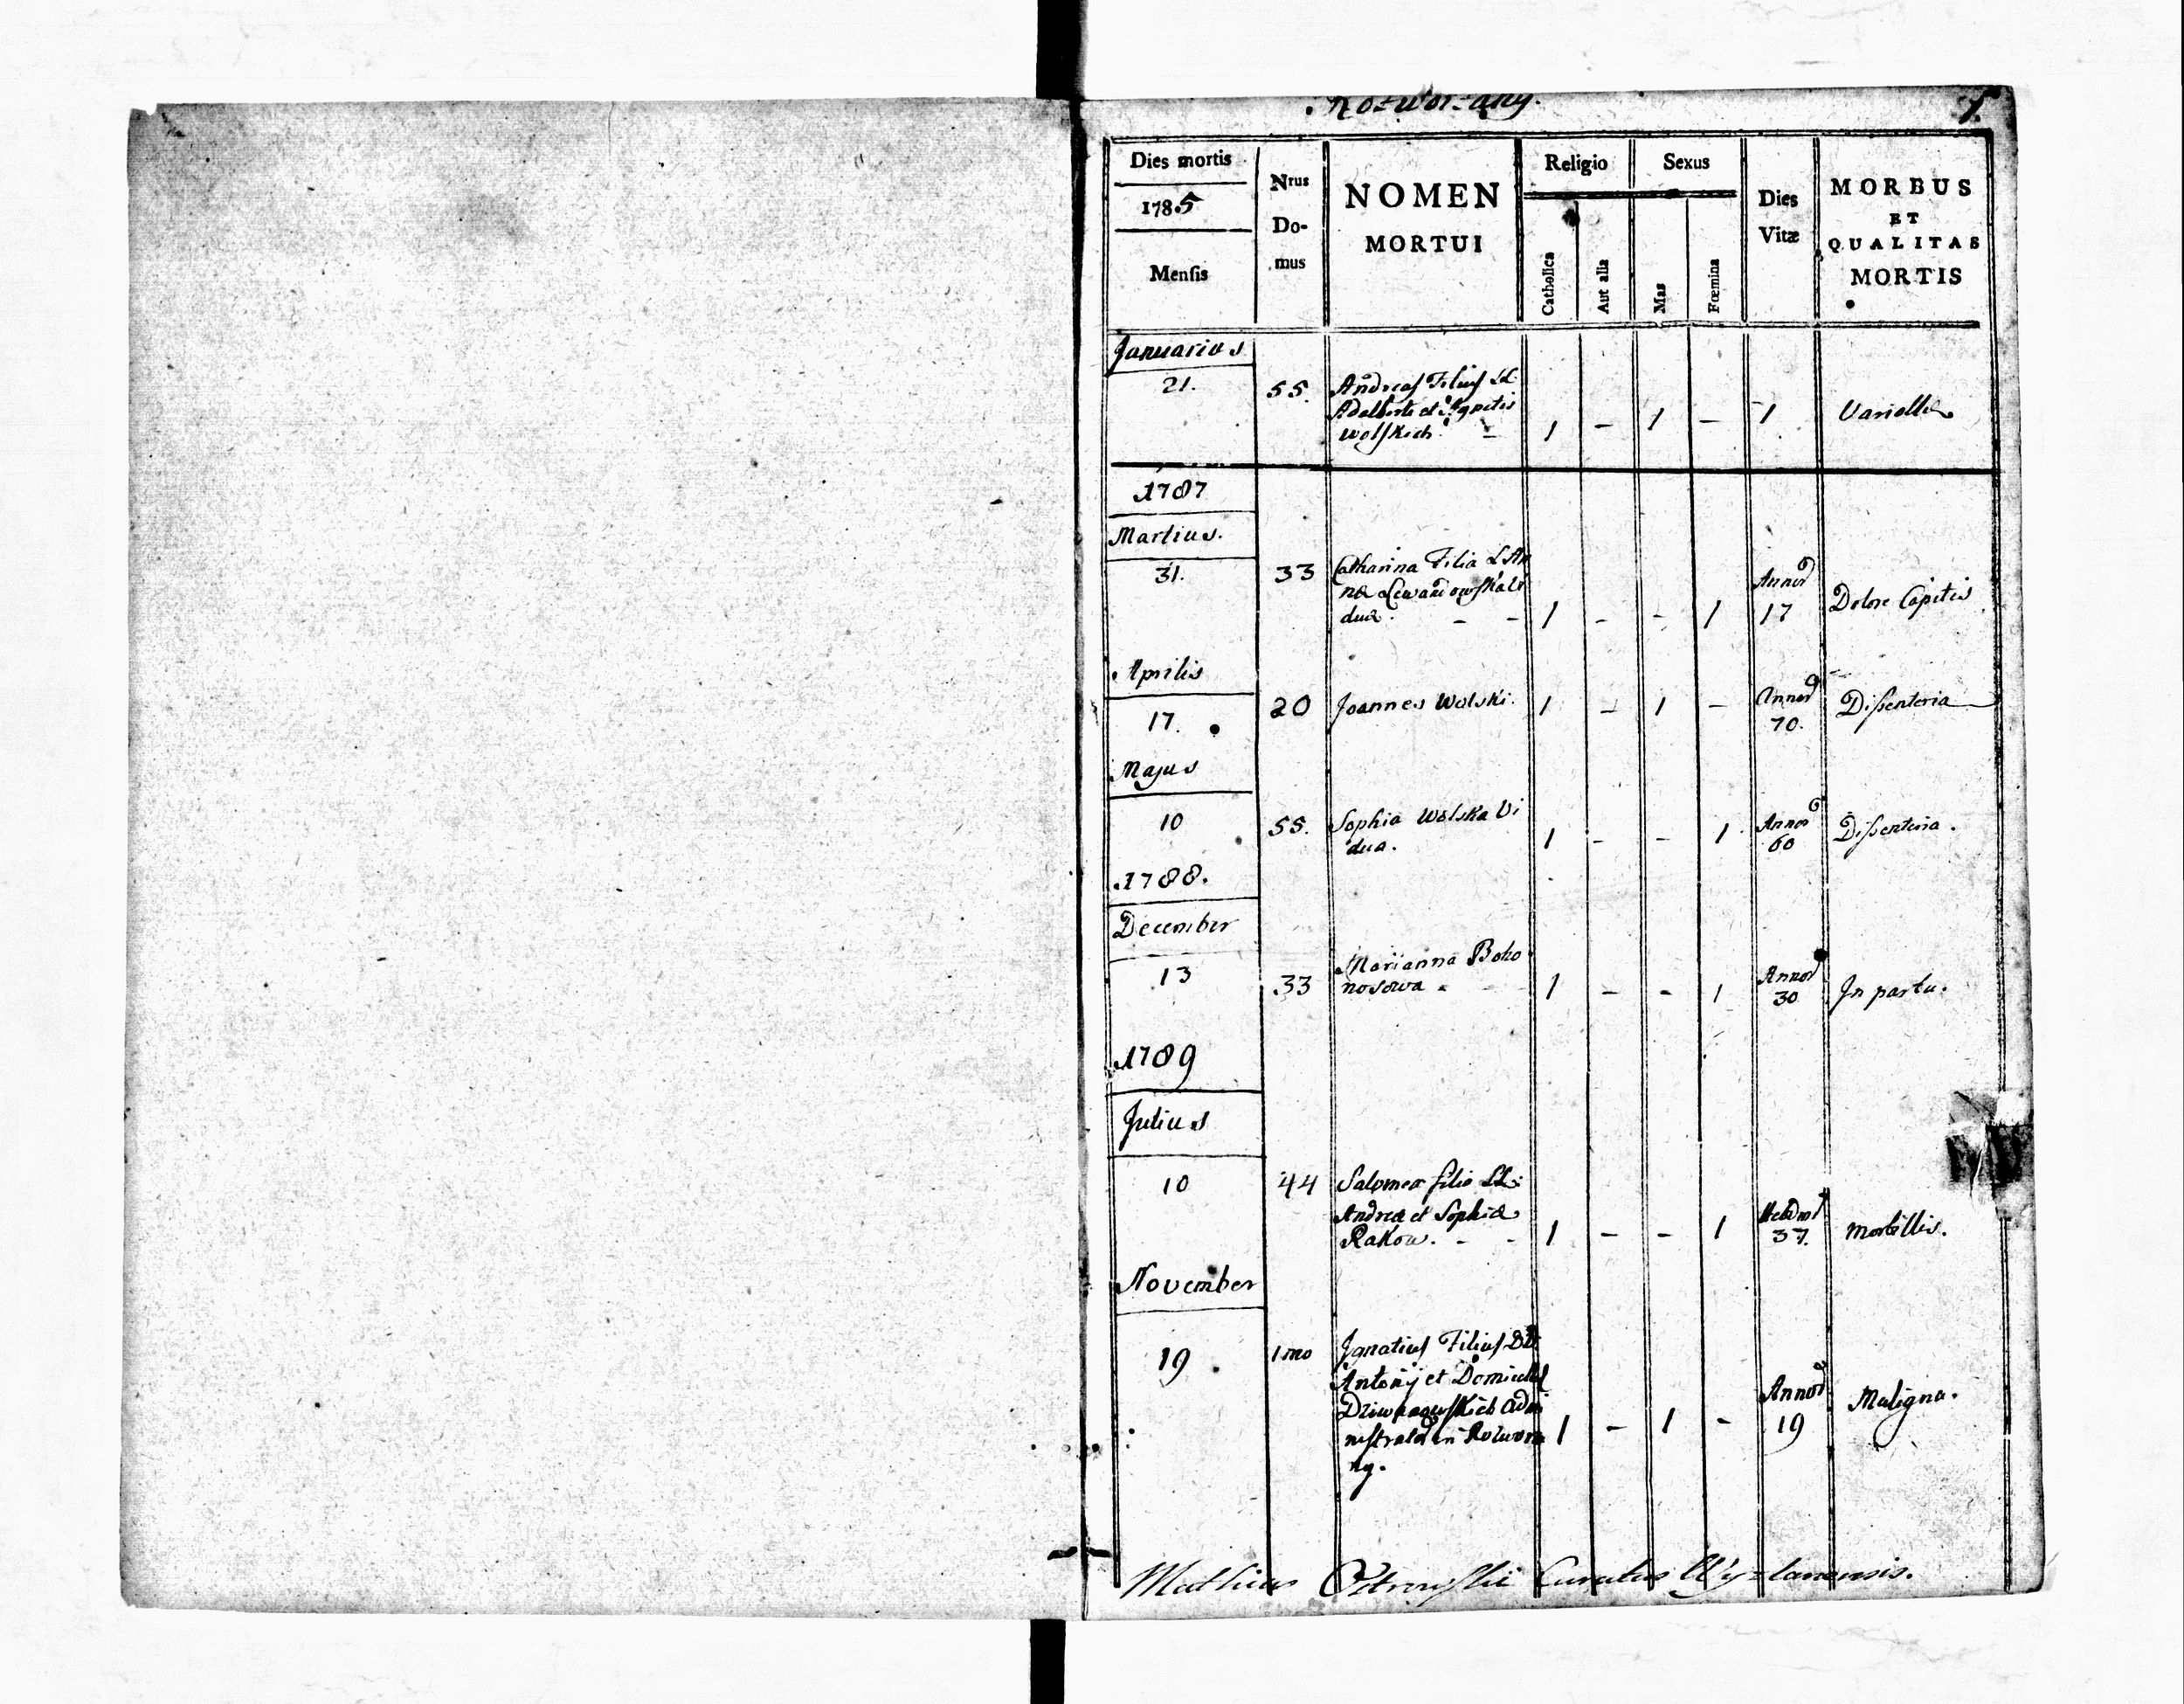 1
Dies mortis
1785
Mensis
Nrus
Do-
mus
NOMEN
MORTUI
Religio
Catholica
Aut alia
Sexus
Mas
Fœmina
Dies
Vitæ
MORBUS
ET
QUALITAS
MORTIS
Januarius
21. 55. Andreas Filius LL.
Adalberti et Agnetis
Wolskich. 1 - 1 - 1 Variolla
1787
Martius.
31. 33 Catharina Filia L An
næ Lewandowska Vi
duæ. - - 1 - - 1 Annor 17 Dolore Capitis
Aprilis
17. 20 Joannes Wolski. 1 - 1 - Annor 70. Dissenteria
Majus
10 55. Sophia Wolska Vi
dua. 1 - - 1 Annor 60 Dissenteria.
1788.
December
13 33 Marianna Boho
nosowa 1 - - 1 Annor 30 In partu.
1789
Julius
10 44 Salomea filia LL:
Andreæ et Sophiæ
Rakow. - - 1 - - 1 37. Morbillis.
November
19 1mo Ignatius Filius DD
Antonij et
Admi
nistrator in Rozwora
ny. 1 - 1 - Annor 19 Maligna.
Mathias Curatus